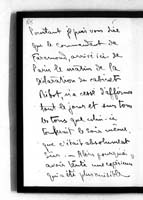 Pourtant je puis vous dire
que le commandant de
Paramond, arrivé ici de
Paris le matin de la
déclaration du cabinet
Ribot, n'a cessé d'affirmer
tout le jour et sur tous
les tons que celui-ci
tomberait le soir même,
que c'était absolument
sûr. Alors pourquoi
avoir tenté une expérience
qui a été plus nuisible